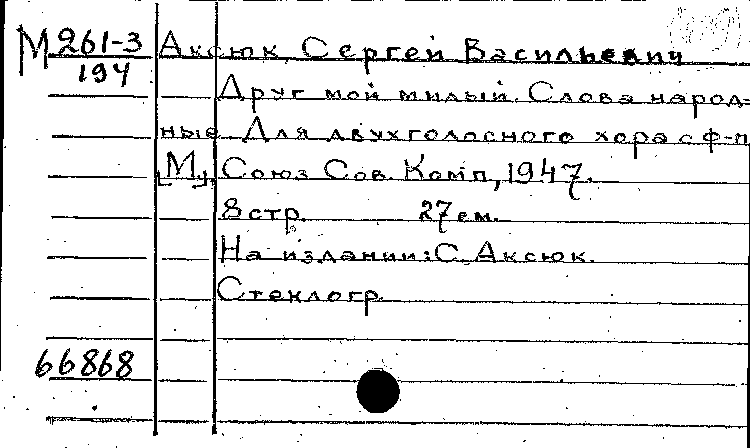 М 261-3 Аксюк, Сергей Васильевич
194
Друг мой милый. Слова народ-
ные. Для двухголосного хора с ф-п
[М], Союз Сов. Комп., 1947.
8 стр. 27 см.
На издании: С. Аксюк.
Стеклогр.
66868